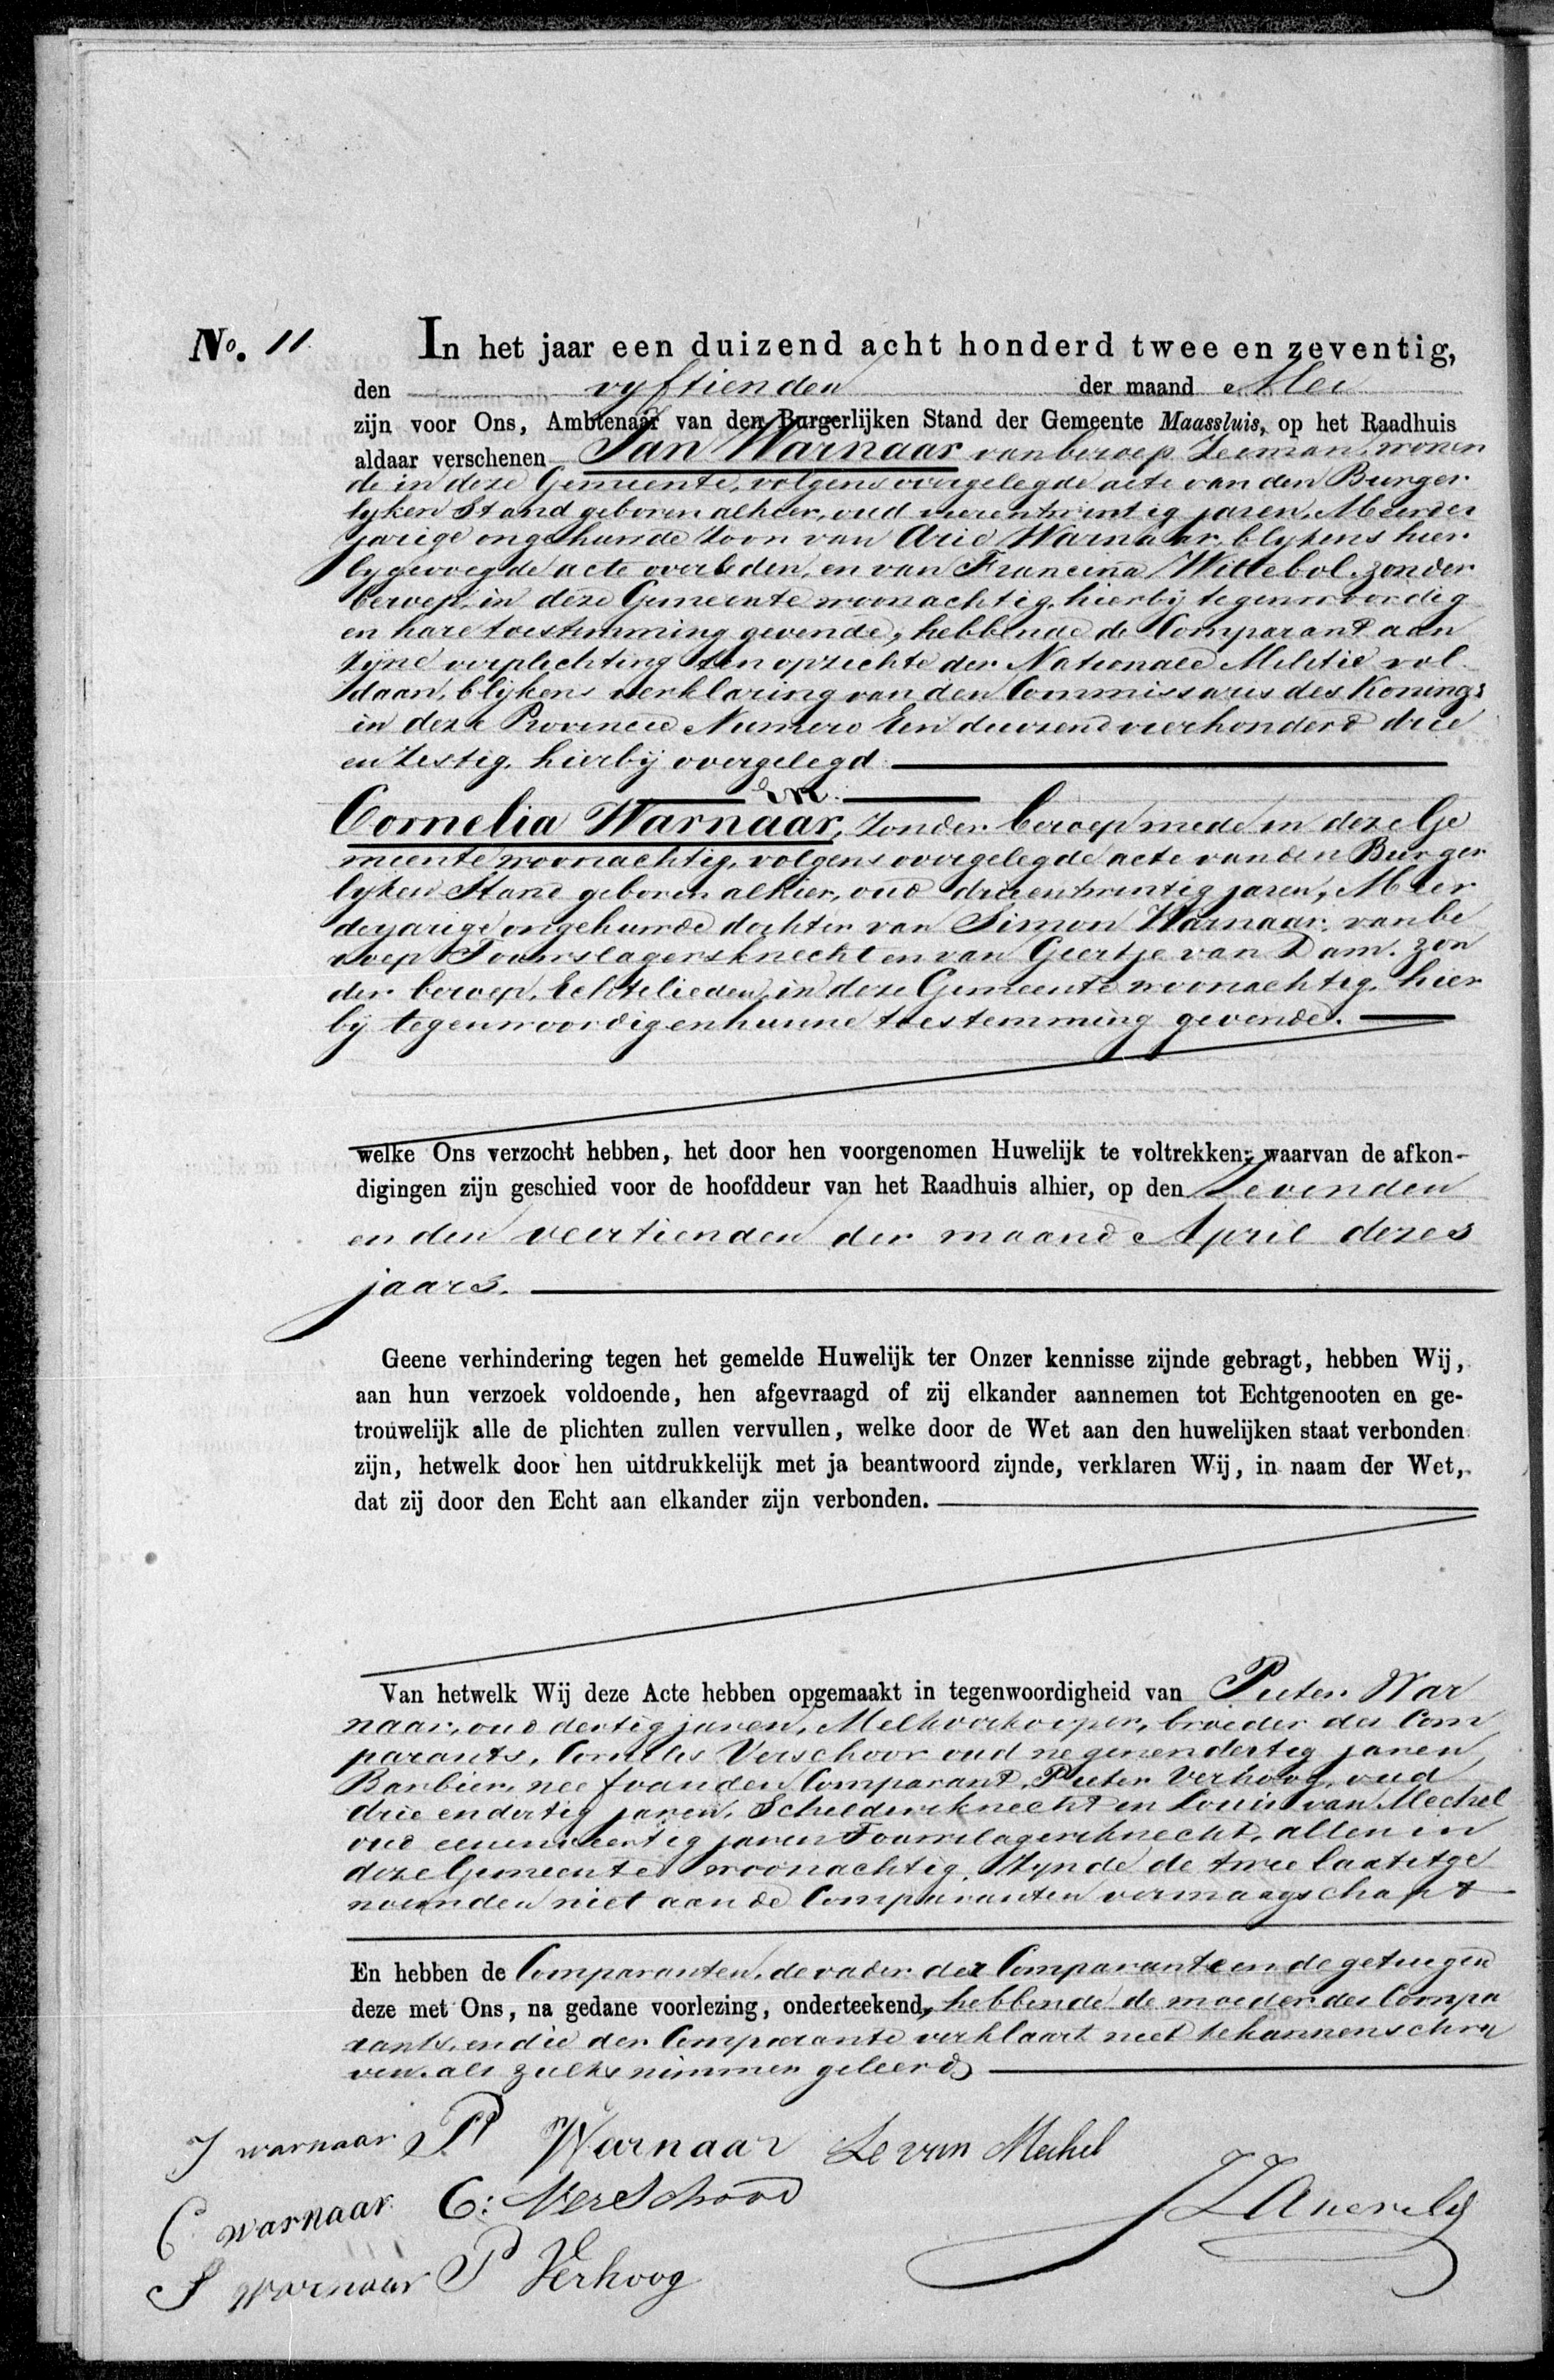 No. 11 In het jaar een duizend acht honderd twee en zeventig,
den vyftienden der maand Mei
zijn voor Ons, Ambtenaar van den Burgerlijken Stand der Gemeente Maassluis, op het Raadhuis
aldaar verschenen Jan Warnaar van beroep Zeeman, wonen
de in deze Gemeente, volgens overgelegde acte van den Burger
lyken Stand geboren alhier, oud vierentwintig jaren, Meerder
jarige ongehuwde Zoon van Arie Warnaar, blykens hier
bygevoegde acte overleden, en van Francina Wittebol, zonder
beroep, in deze Gemeente woonachtig, hierbij tegenwoordig
en hare toestemming gevende, hebbende de Comparant aan
zijne verplichting ten opzichte der Nationale Militie vol
daan, blijkens verklaring van den Commissaris des Konings
in deze Provincie Numero Een duizend vierhonderd drie
en Zestig, hierbij overgelegd.
En
Cornelia Warnaar, zonder beroep mede in deze Ge
meente woonachtig, volgens overgelegde acte van den Burger
lyken Stand geboren alhier, oud drieentwintig jaren, Meer
derjarige ongehuwde dochter van Simon Warnaar, van be
roep Touwslagersknecht en van Geertje van Dam, zon
der beroep, Echtelieden, in deze Gemeente woonachtig, hier
bij tegenwoordig en hunne toestemming gevende.
welke Ons verzocht hebben, het door hen voorgenomen Huwelijk te voltrekken; waarvan de afkon-
digingen zijn geschied voor de hoofddeur van het Raadhuis alhier, op den Zevenden
en den veertienden der maand April dezes
jaars.
Geene verhindering tegen het gemelde Huwelijk ter Onzer kennisse zijnde gebragt, hebben Wij,
aan hun verzoek voldoende, hen afgevraagd of zij elkander aannemen tot Echtgenooten en ge-
trouwelijk alle de plichten zullen vervullen, welke door de Wet aan den huwelijken staat verbonden
zijn, hetwelk door hen uitdrukkelijk met ja beantwoord zijnde, verklaren Wij, in naam der Wet,
dat zij door den Echt aan elkander zijn verbonden.
Van hetwelk Wij deze Acte hebben opgemaakt in tegenwoordigheid van Pieter War
naar, oud dertig jaren, Melkverkooper, broeder des Com
parants, Cornelis Verschoor oud negenendertig jaren
Barbier, neef van den Comparant, Pieter Verhoog, oud
drie endertig jaren, Schildersknecht en Louis van Mechel
oud eenenveertig jaren Touwslagersknecht, allen in
deze Gemeente woonachtig. Zynde de twee laatstge
noemden niet aan de Comparanten vermaagschapt
En hebben de Comparanten, de vader der Comparante en de getuigen
deze met Ons, na gedane voorlezing, onderteekend, hebbende de moeder des Compa
rants, en die der Comparante verklaart niet te kunnen schry
ven als zulks nimmer geleerd
J warnaar P Warnaar Le van Mechel
C warnaar C: Verschoor
S warnaar P Verhoog